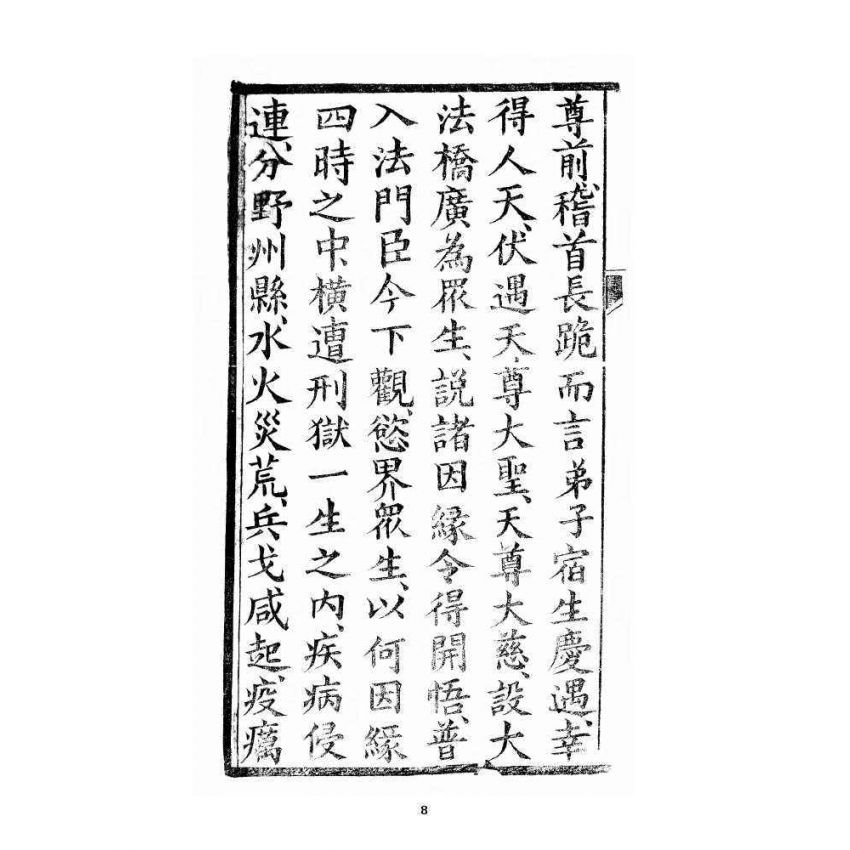 尊前、稽首長跪而言弟子宿生慶遇、幸
得人天、伏遇天尊大聖、天尊大慈、設大
法橋廣為眾生、説諸因緣令得開悟、普
入法門臣今下觀、慾界眾生、以何因緣
四時之中、橫遭刑獄一生之内、疾病侵
連、分野州縣、水火災荒、兵戈咸起、疫癘
8